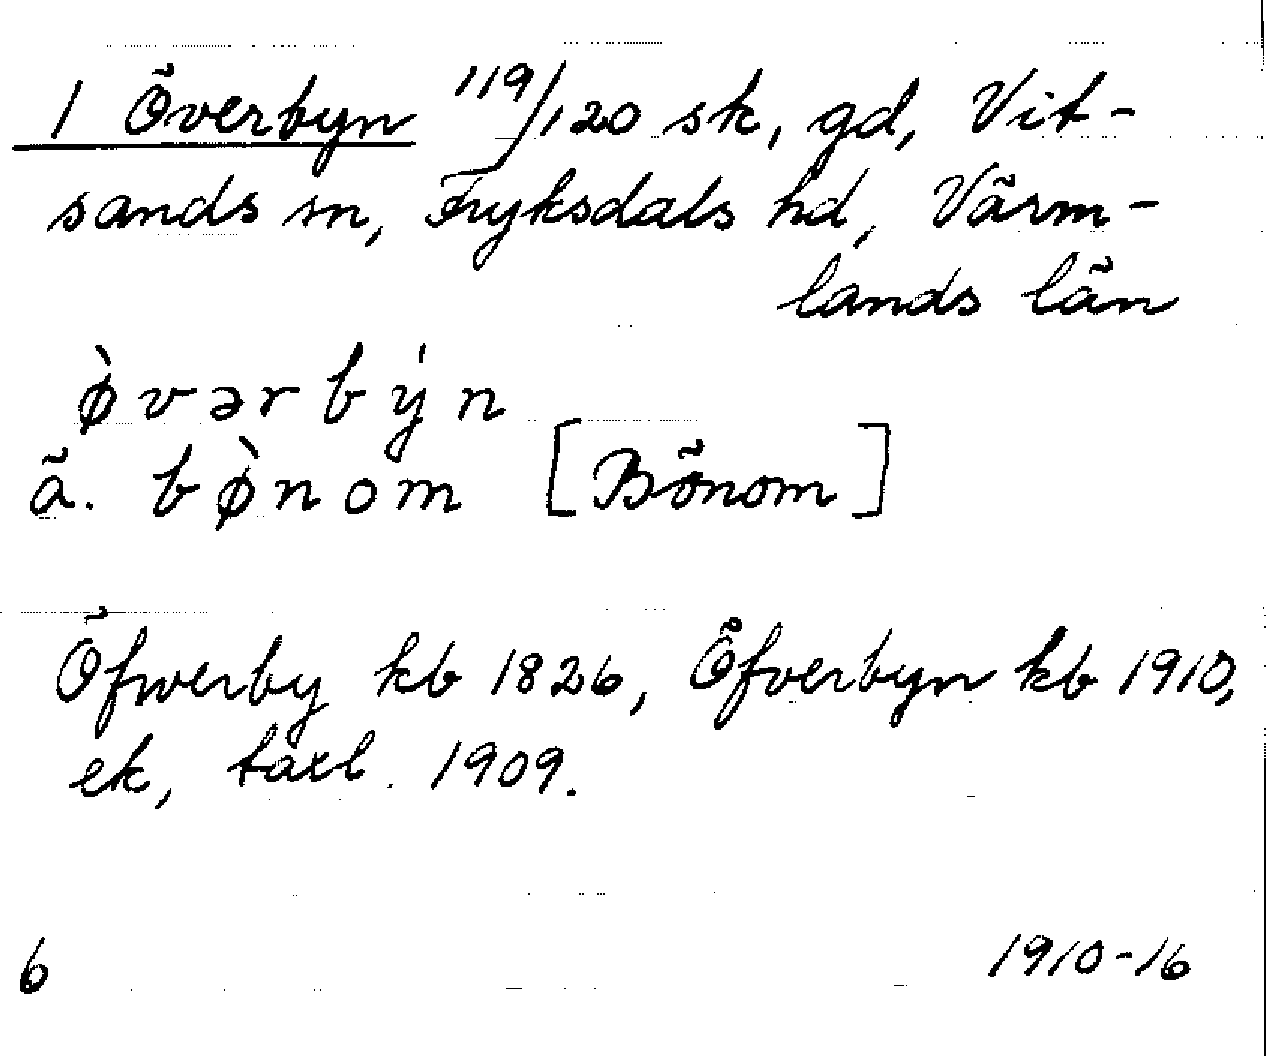 1 Överbyn 119/120 sk, gd, Vit-
sands sn, Fryksdals hd, Värm-
lands län
ø̀vərby̍n
ä. bø̀nom [Bönom]
Öfwerby kb 1826, Öfverbyn kb 1910,
ek, taxl. 1909.
6 1910-16